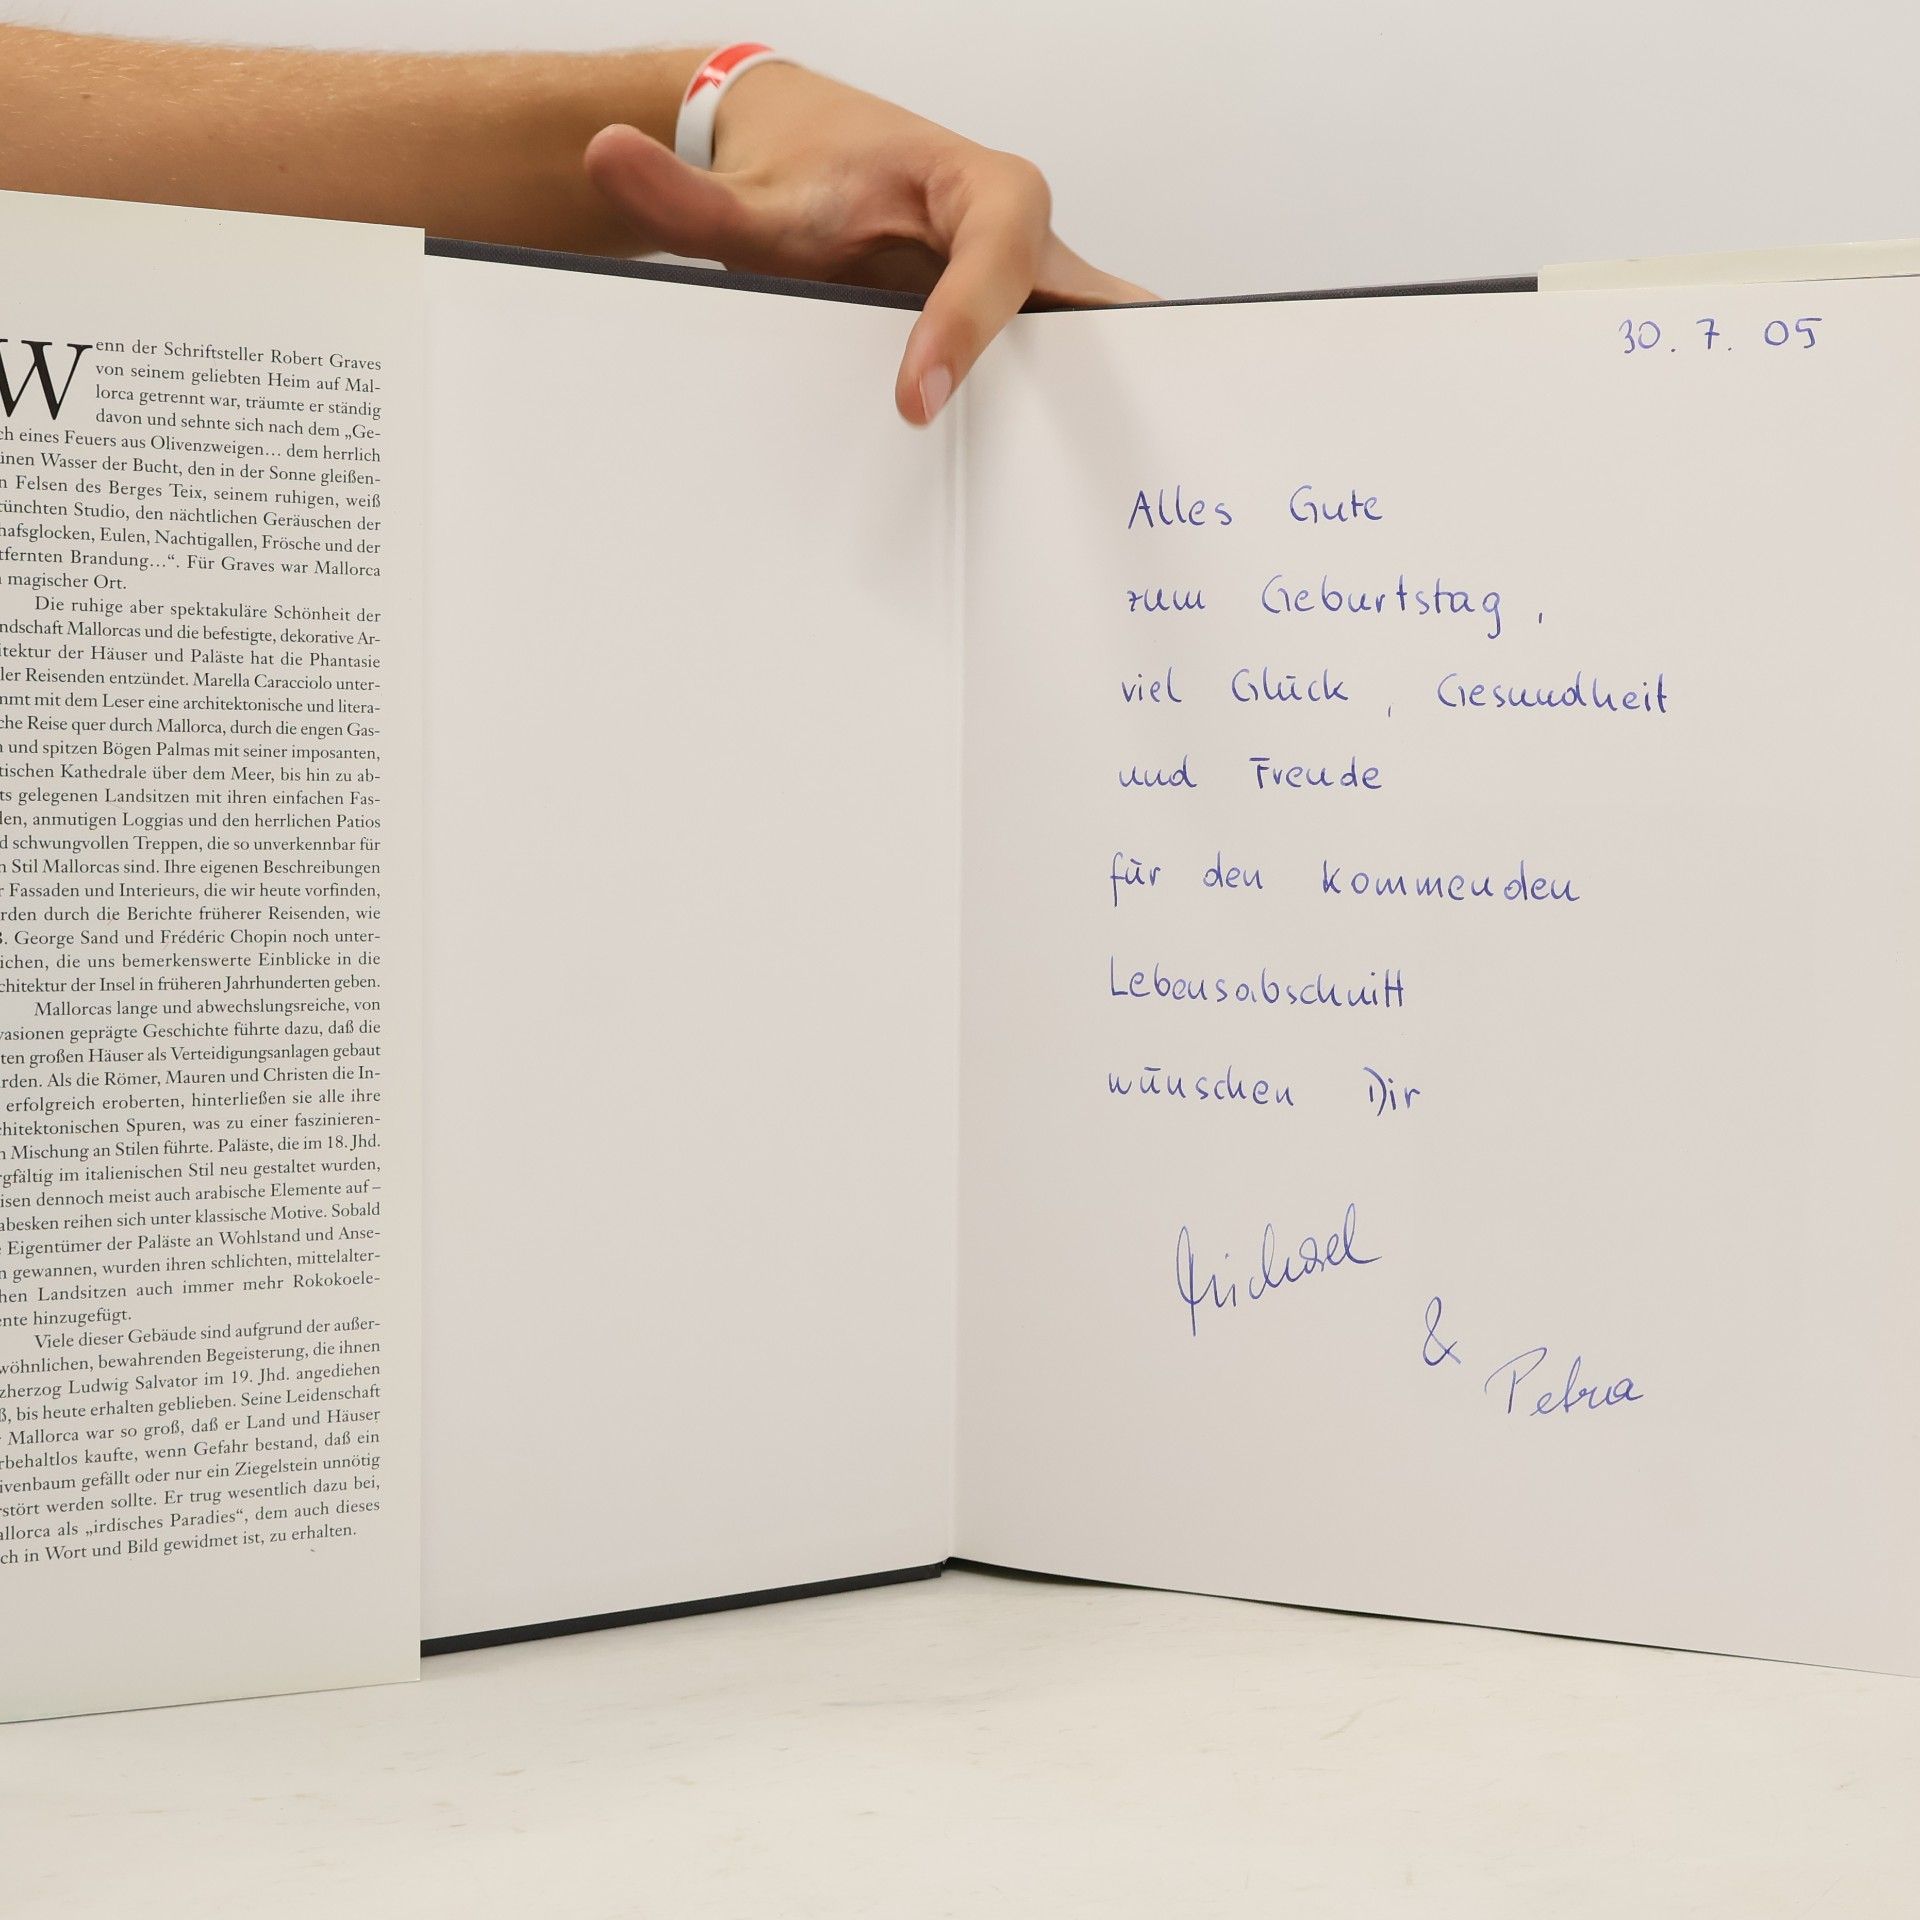 Wenn der Schriftsteller Robert Graves
von seinem geliebten Heim auf Mal-
lorca getrennt war, träumte er ständig
davon und sehnte sich nach dem „Ge-
ch eines Feuers aus Olivenzweigen… dem herrlich
ünen Wasser der Bucht, den in der Sonne gleißen-
n Felsen des Berges Teix, seinem ruhigen, weiß
tünchten Studio, den nächtlichen Geräuschen der
hafsglocken, Eulen, Nachtigallen, Frösche und der
tfernten Brandung…“. Für Graves war Mallorca
magischer Ort.
Die ruhige aber spektakuläre Schönheit der
ndschaft Mallorcas und die befestigte, dekorative Ar-
itektur der Häuser und Paläste hat die Phantasie
ler Reisenden entzündet. Marella Caracciolo unter-
mmt mit dem Leser eine architektonische und litera-
che Reise quer durch Mallorca, durch die engen Gas-
n und spitzen Bögen Palmas mit seiner imposanten,
tischen Kathedrale über dem Meer, bis hin zu ab-
ts gelegenen Landsitzen mit ihren einfachen Fas-
den, anmutigen Loggias und den herrlichen Patios
d schwungvollen Treppen, die so unverkennbar für
n Stil Mallorcas sind. Ihre eigenen Beschreibungen
r Fassaden und Interieurs, die wir heute vorfinden,
rden durch die Berichte früherer Reisenden, wie
B. George Sand und Frédéric Chopin noch unter-
ichen, die uns bemerkenswerte Einblicke in die
chitektur der Insel in früheren Jahrhunderten geben.
Mallorcas lange und abwechslungsreiche, von
vasionen geprägte Geschichte führte dazu, daß die
ten großen Häuser als Verteidigungsanlagen gebaut
rden. Als die Römer, Mauren und Christen die In-
erfolgreich eroberten, hinterließen sie alle ihre
chitektonischen Spuren, was zu einer faszinieren-
n Mischung an Stilen führte. Paläste, die im 18. Jhd.
rgfältig im italienischen Stil neu gestaltet wurden,
isen dennoch meist auch arabische Elemente auf –
abesken reihen sich unter klassische Motive. Sobald
e Eigentümer der Paläste an Wohlstand und Anse-
n gewannen, wurden ihren schlichten, mittelalter-
hen Landsitzen auch immer mehr Rokokoele-
ente hinzugefügt.
Viele dieser Gebäude sind aufgrund der außer-
wöhnlichen, bewahrenden Begeisterung, die ihnen
zherzog Ludwig Salvator im 19. Jhd. angediehen
ß, bis heute erhalten geblieben. Seine Leidenschaft
r Mallorca war so groß, daß er Land und Häuser
rbehaltlos kaufte, wenn Gefahr bestand, daß ein
ivenbaum gefällt oder nur ein Ziegelstein unnötig
rstört werden sollte. Er trug wesentlich dazu bei,
allorca als „irdisches Paradies“, dem auch dieses
ch in Wort und Bild gewidmet ist, zu erhalten.
30. 7. 05
Alles Gute
zum Geburtstag,
viel Glück, Gesundheit
und Freude
für den kommenden
Lebensabschnitt
wünschen Dir
Michael
&
Petra